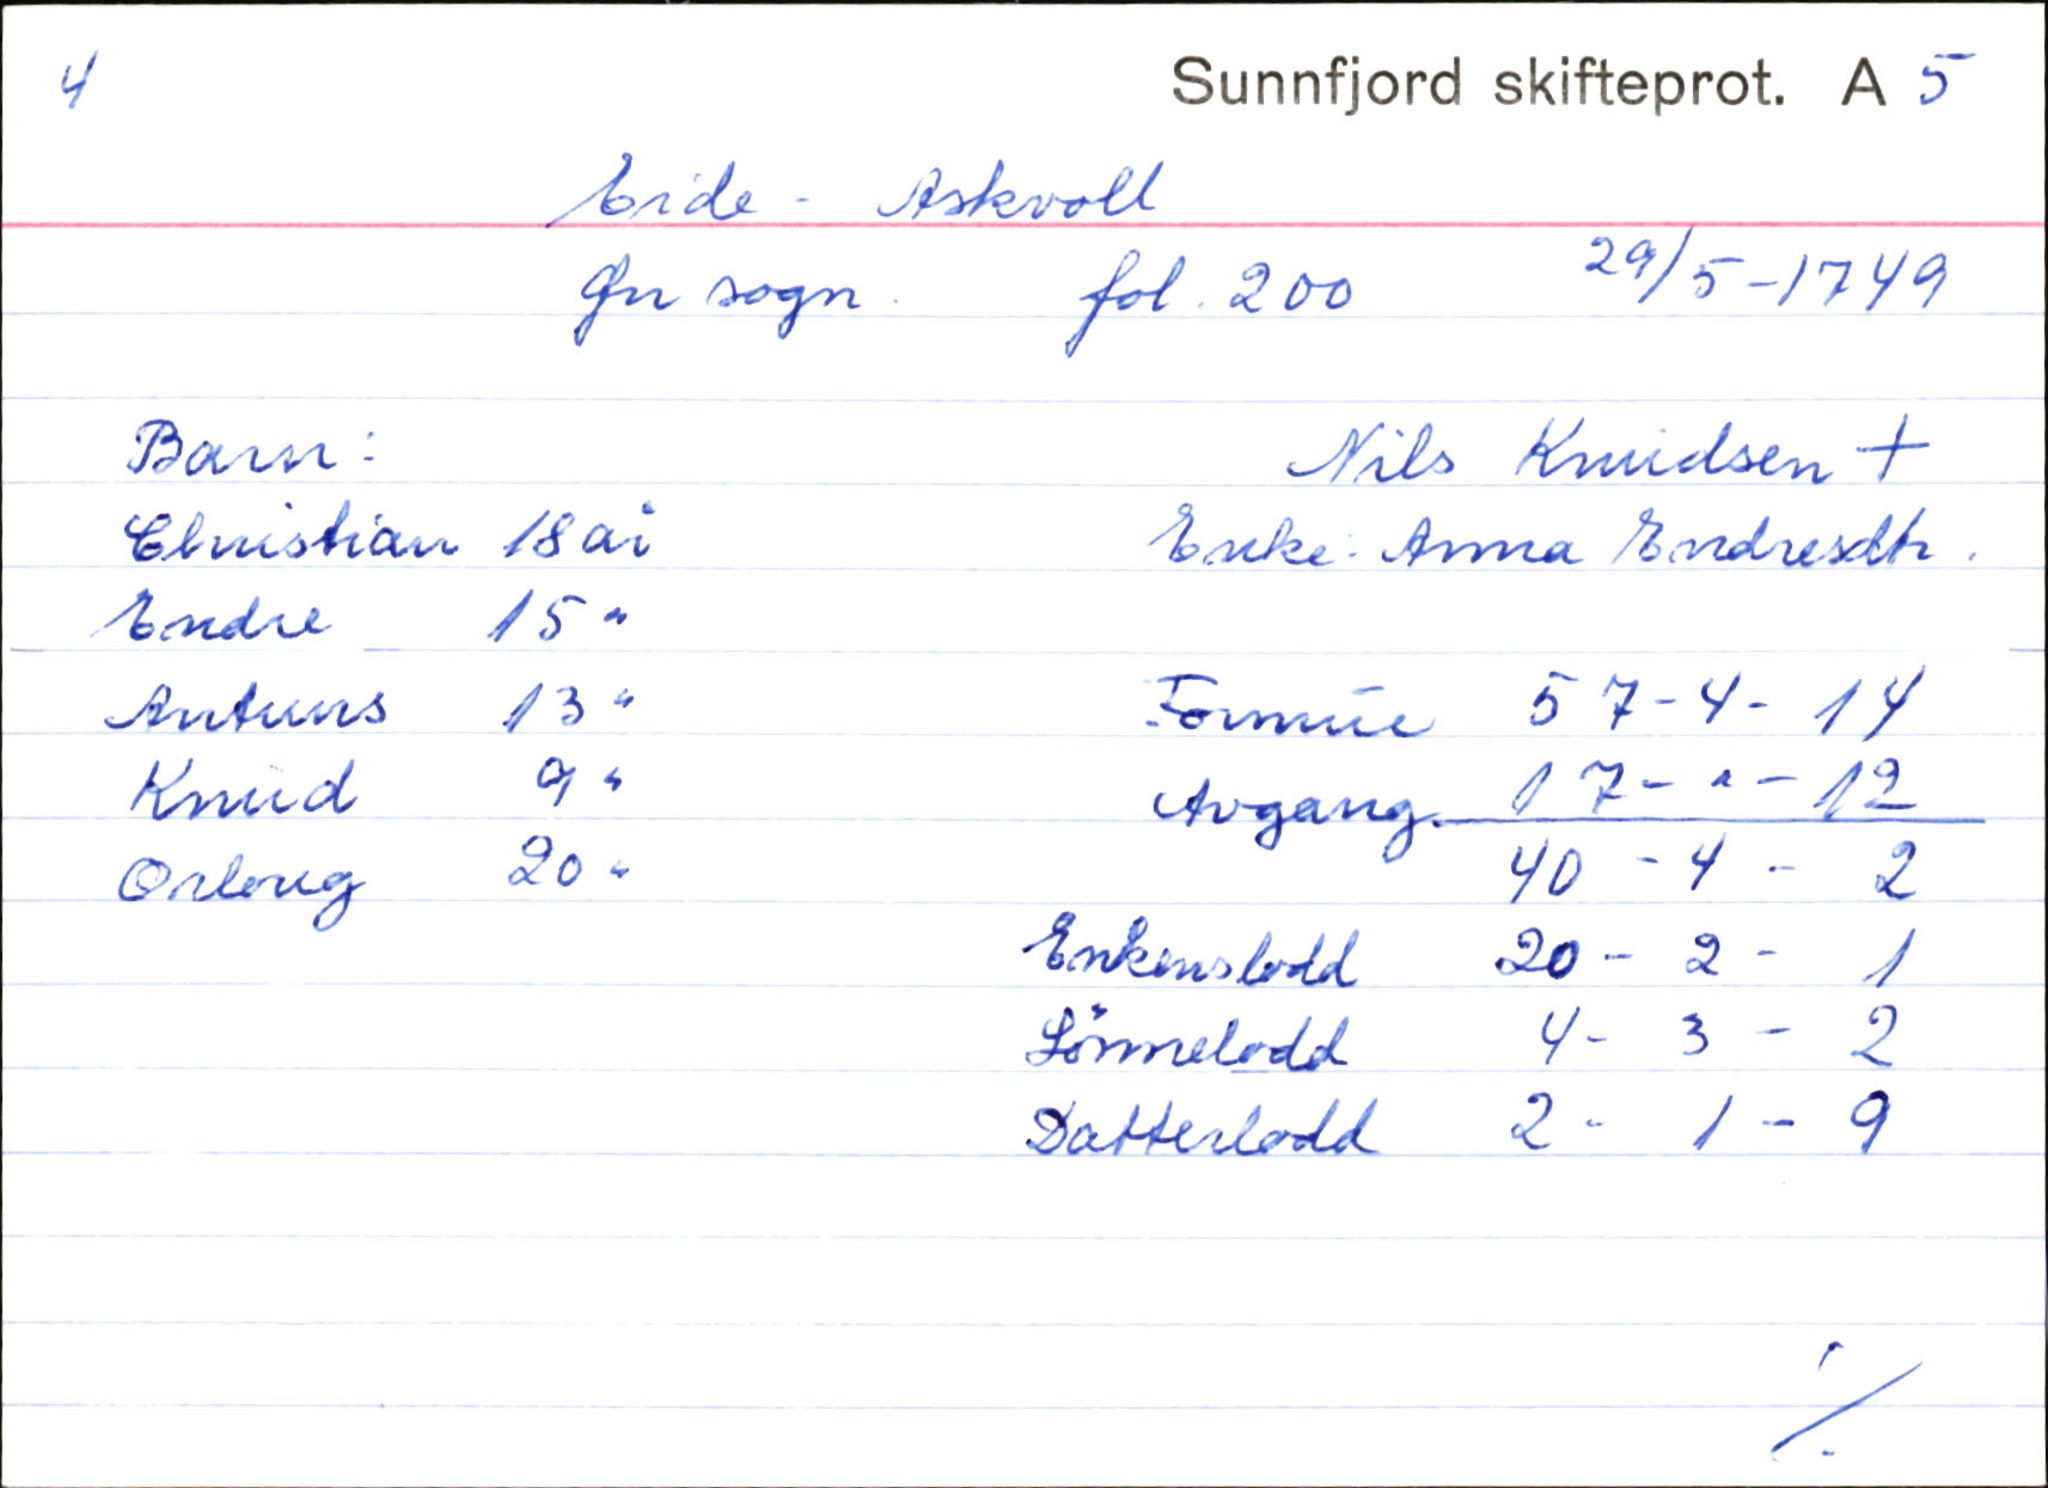 4 Sunnfjord skifteprot. A 5
Eide - Askvoll
Øn sogn. fol. 200 29/5-1749
Barn: Nils Knudsen +
Christian 18 år Enke: Anna Endresdtr.
Endre 15 "
Antuns 13 " Formue 57-4-14
Knud 9 " Avgang. 17-"-12
Orloug 20 " 40-4-2
Enkenslodd 20-2-1
Sönnelodd 4-3-2
Datterlodd 2-1-9
./.